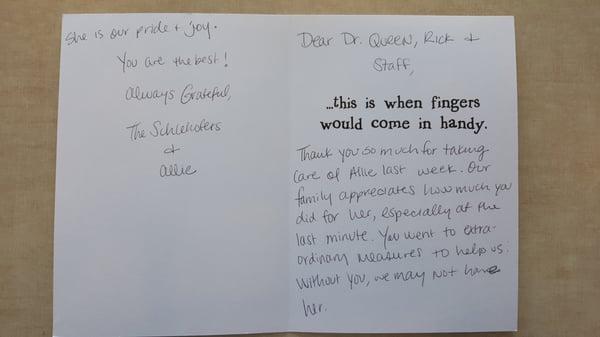 Dear Dr. Queen, Rick &
Staff,
...this is when fingers
would come in handy.
Thank you so much for taking
care of Allie last week. Our
family appreciates how much you
did for her, especially at the
last minute. You went to extra-
ordinary measures to help us.
Without you, we may not have
her.
She is our pride & joy.
You are the best!
Always Grateful,
The Schlehofers
&
Allie